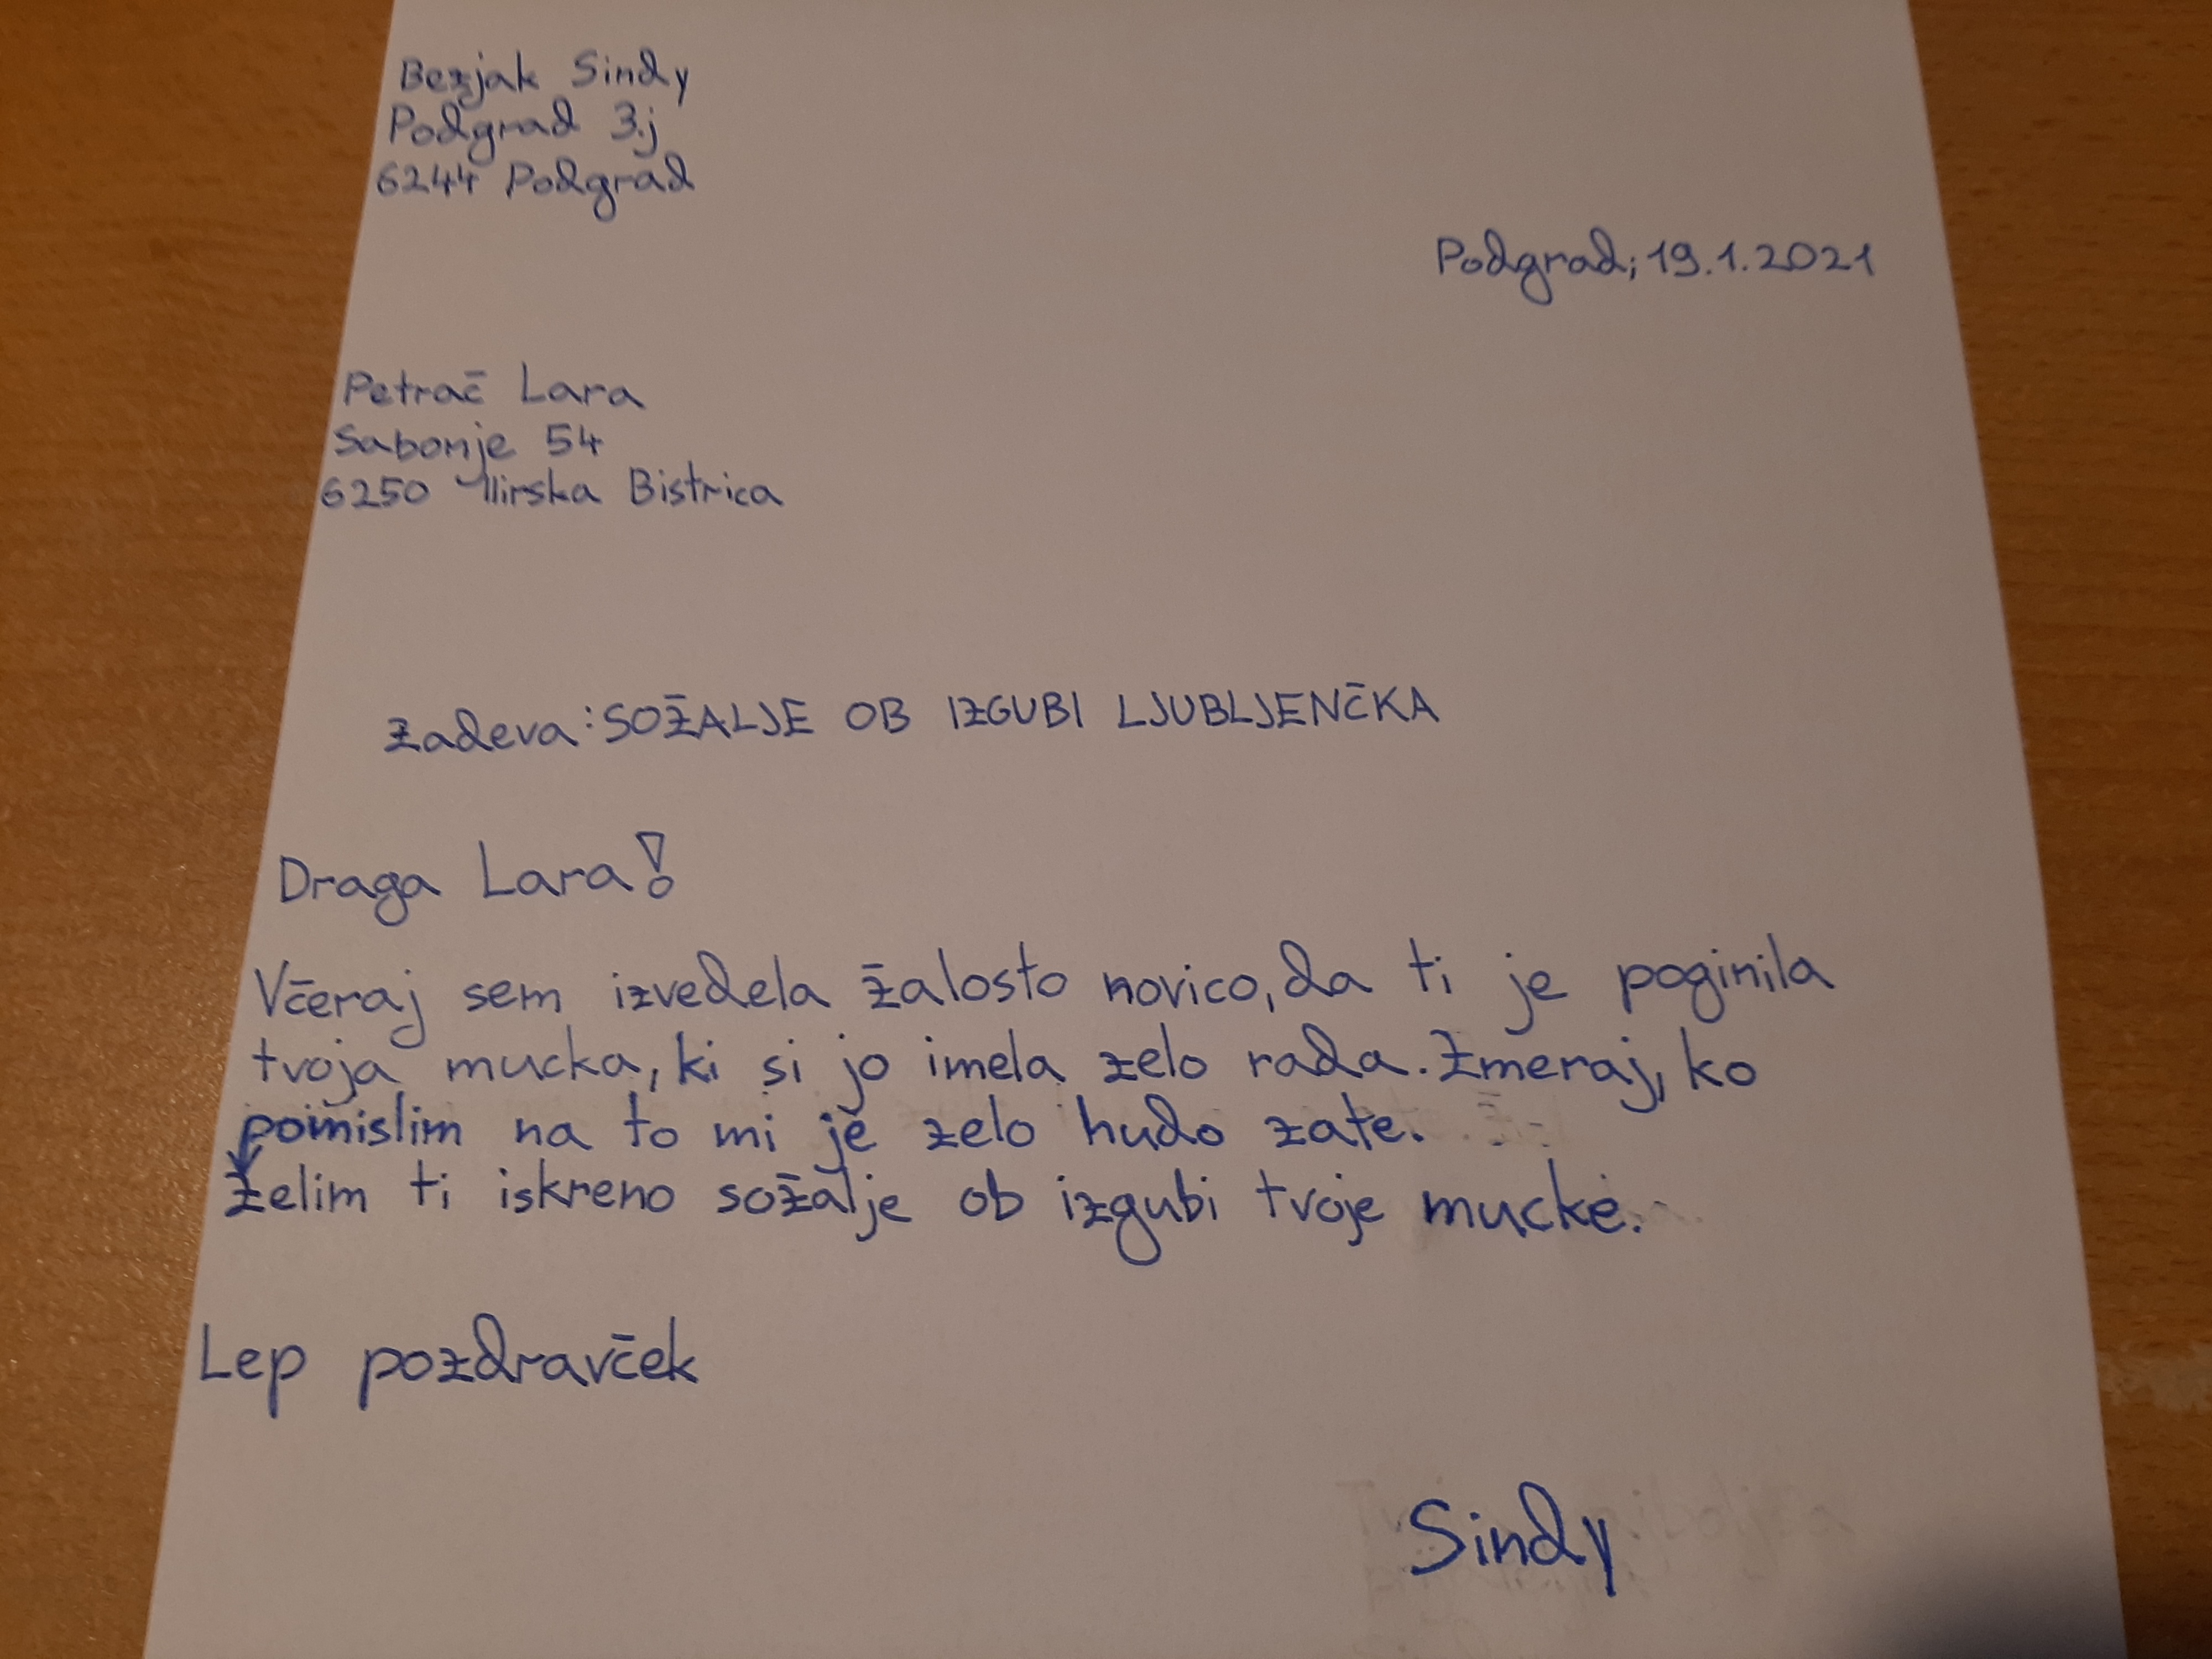 Bezjak Sindy
Podgrad 3.j
6244 Podgrad
Podgrad; 19.1.2021
Petrač Lara
Sabonje 54
6250 Ilirska Bistrica
Zadeva: SOŽALJE OB IZGUBI LJUBLJENČKA
Draga Lara!
Včeraj sem izvedela žalosto novico, da ti je poginila
tvoja mucka, ki si jo imela zelo rada. Zmeraj, ko
pomislim na to mi je zelo hudo zate.
Želim ti iskreno sožalje ob izgubi tvoje mucke.
Lep pozdravček
Sindy